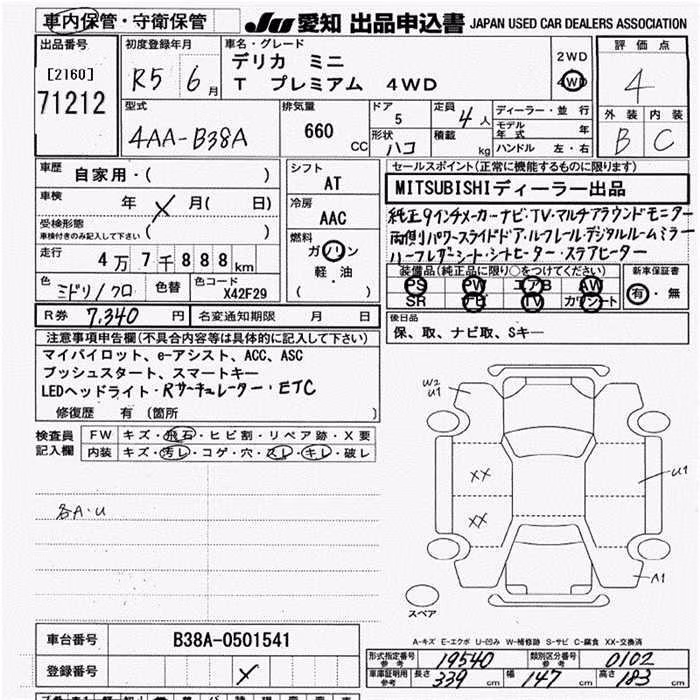 車内保管・守衛保管
JU 愛知 出品申込書 JAPAN USED CAR DEALERS ASSOCIATION
出品番号
[2160]
71212
初度登録年月
R5 6月
車名・グレード
デリカ ミニ
T プレミアム 4WD
2WD
4WD
評価点
4
外装 内装
B C
型式
4AA-B38A
排気量
660 CC
ドア 5
形状 ハコ
定員 4人
積載 kg
ディーラー・並行
モデル年式 年
ハンドル 左・右
車歴
自家用・( )
車検
年 月( 日)
受検形態
車検付きのみ記入して下さい ( )
走行
4万7千888km
色 ミドリ/クロ 色替
色コード X42F29
シフト
AT
冷房
AAC
燃料
ガソリン
軽・油
( )
セールスポイント(正常に機能するものに限ります)
MITSUBISHIディーラー出品
純正9インチメーカーナビ・TV・マルチアラウンドモニター
両側パワースライドドア・ルーフレール・デジタルルームミラー
ハーフレザーシート・シートヒーター・ステアヒーター
装備品(純正品に限り○をつけてください)
PS PW エアB AW
SR ナビ TV カワシート
新車保証書
有・無
R券 7,340円 名変通知期限 月 日
後日品
保、取、ナビ取、Sキー
注意事項申告欄(不具合内容等は具体的に記入して下さい)
マイパイロット、e-アシスト、ACC、ASC
プッシュスタート、スマートキー
LEDヘッドライト・Rサーキュレーター・ETC
修復歴 有 (箇所 )
検査員
記入欄
FW キズ・飛石・ヒビ割・リペア跡・X要
内装 キズ・汚レ・コゲ・穴・スレ・キレ・破レ
各A・U
W2
U1
XX
XX
U1
A1
スペア
A-キズ E-エクボ U-凹み W-補修跡 S-サビ C-腐食 XX-交換済
車台番号 B38A-0501541
登録番号
形式指定番号 参考 19540 類別区分番号 参考 0102
車庫証明用 参考 長さ 339cm 幅 147cm 高さ 183cm